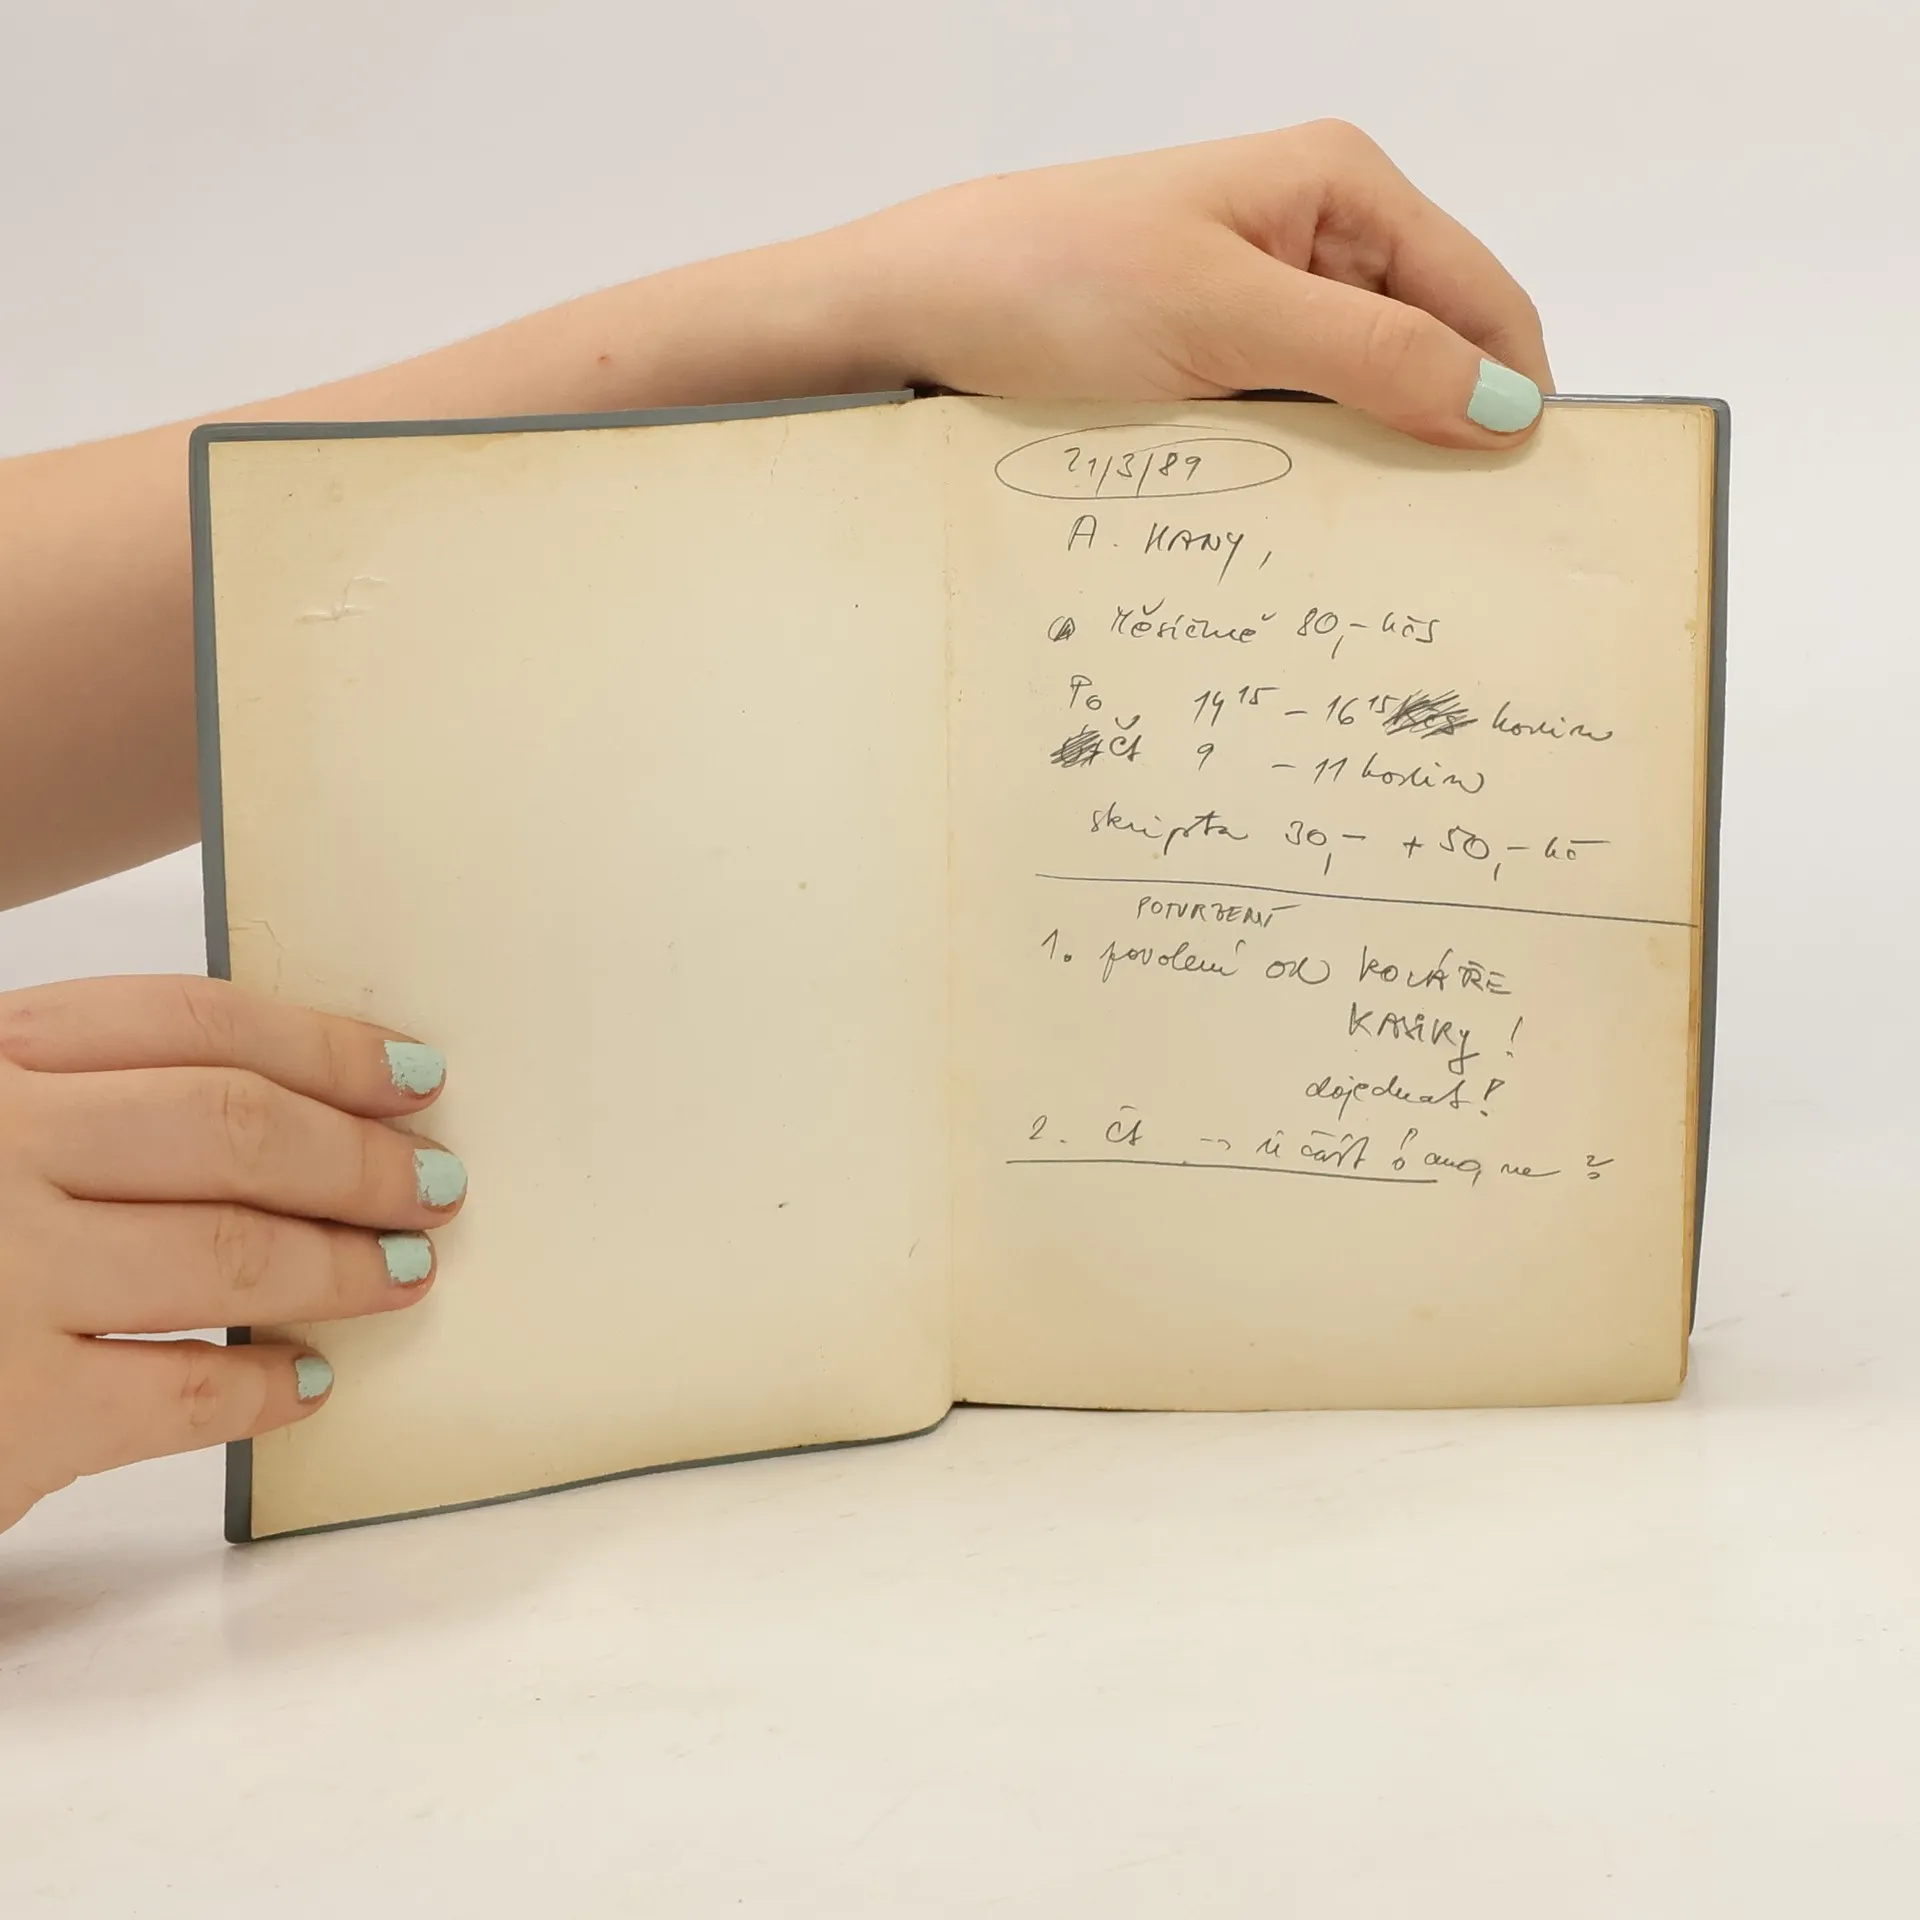 21/3/89
A. HANY,
Měsíčně 80,- kčs
Po 14 15 - 16 15 hodin
Čt 9 - 11 hodin
skripta 30,- + 50,- kč
POTVRZENÍ
1. povolení od KOVÁŘE
KAŠKY!
dojednat!
2. Čt -> účast? ano, ne?